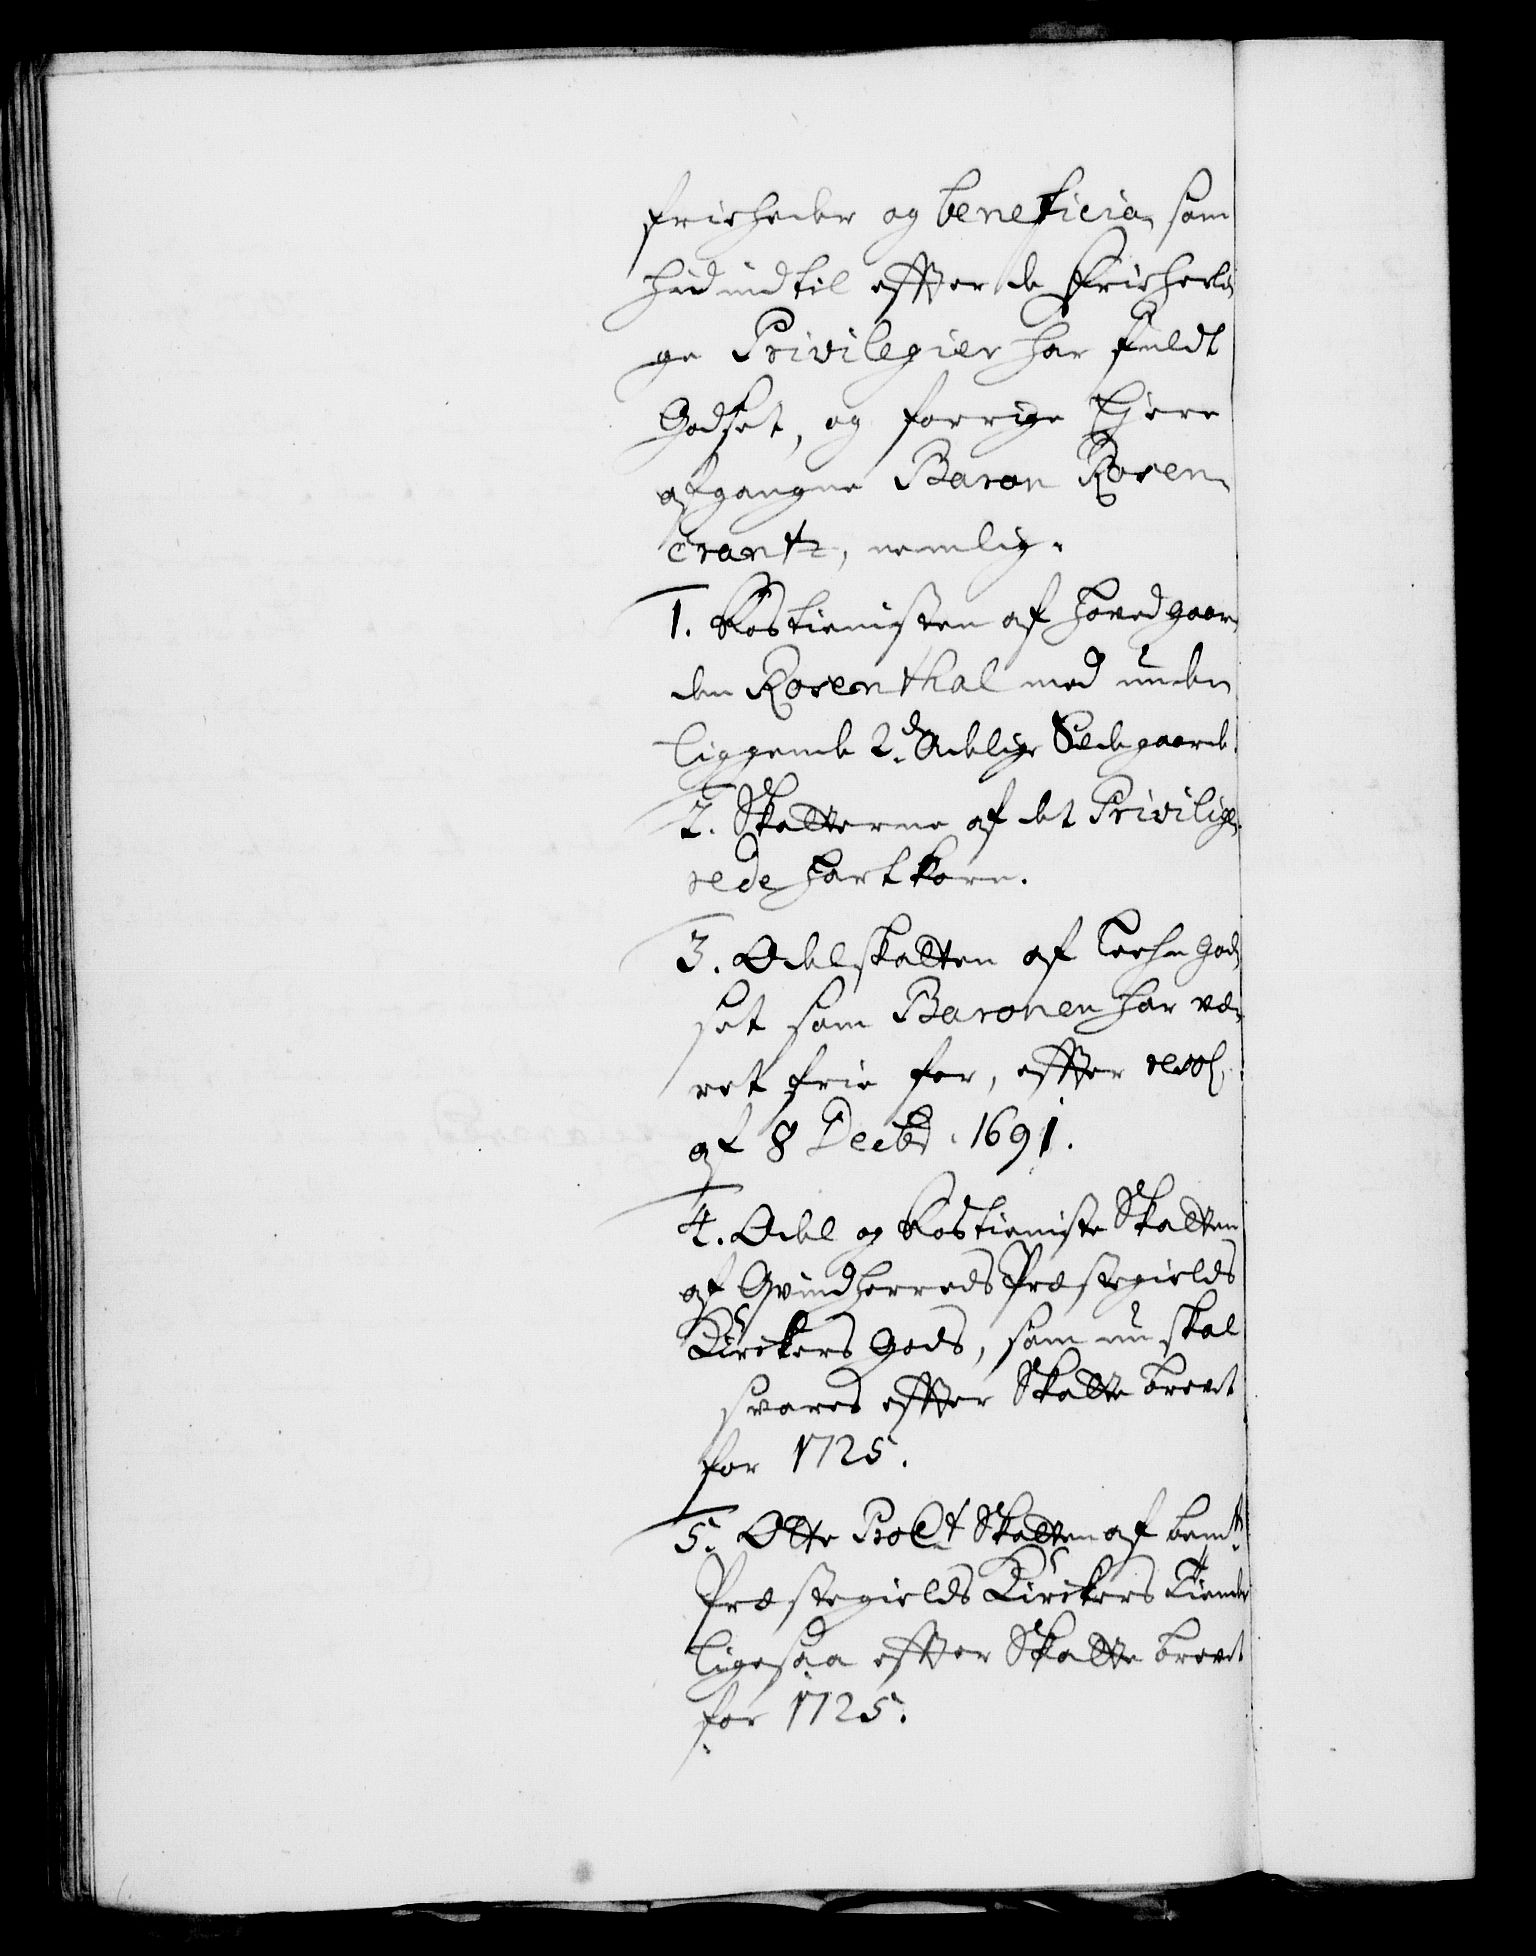 friheder og beneficia, som
hid indtil effter de Friherli
ge Privilegier har fuldt
Godset, og forrige Ejere
afgangne Baron Rosen
crantz, nemlig.
1. Rostienisten af Hovedgaar
den Rosenthal med under
liggende 2de Adelige Sædegaarde.
2. Skatterne af det Privilige
rede Hartkorn.
3. Odelskatten af Leehn god
set som Baronen har væ
ret frie for, effter resol:
af 8 Decbr. 1691.
4. Odel og Rostieniste Skatten
af Qvindherreds Præstegields
Kirckers Gods, som nu skal
svares effter Skatte brevet
for 1725.
5. Otte Proct Skatten af bemte
Præstegields Kirckers Tiender
ligesaa effter Skatte brevet
for 1725.